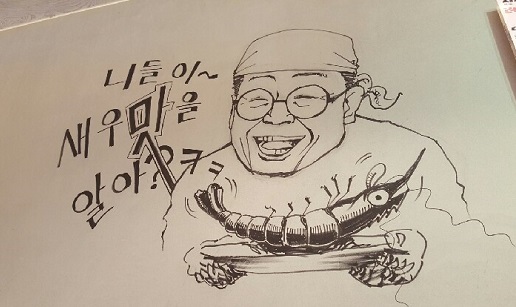 니들이~
새우맛을
알아?ㅋㅋ